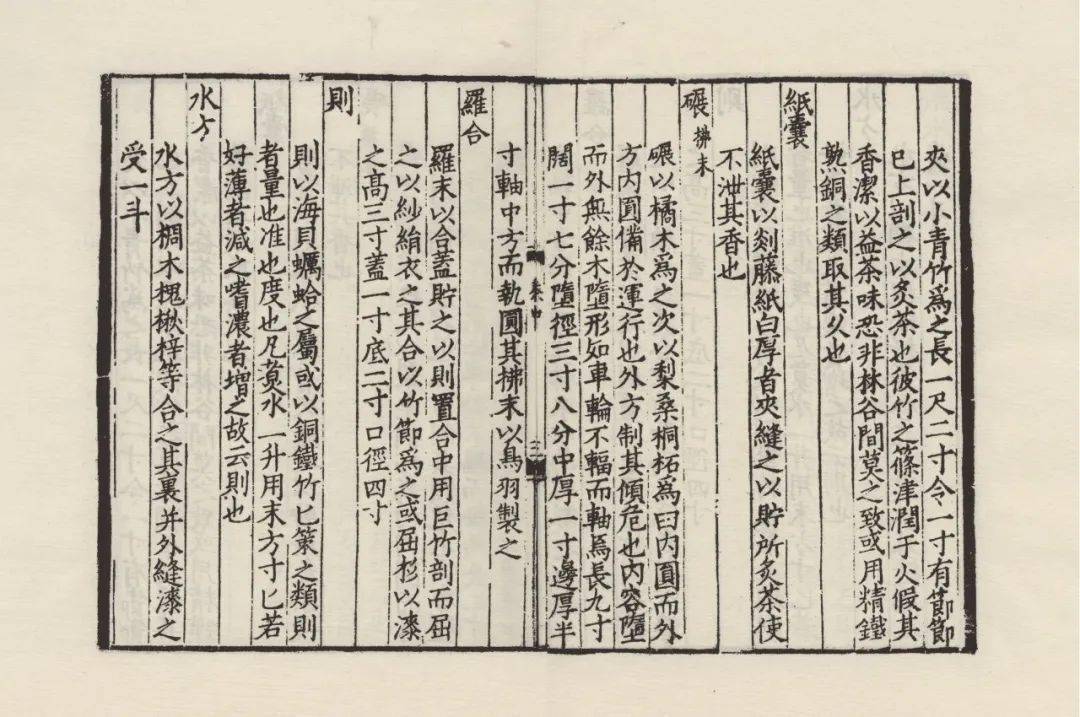 夾以小青竹爲之長一尺二寸令一寸有節節
已上剖之以炙茶也彼竹之篠津潤于火假其
香潔以益茶味恐非林谷間莫之致或用精鐵
熟銅之類取其久也
紙囊
紙囊以剡藤紙白厚者夾縫之以貯所炙茶使
不泄其香也
碾拂末
碾以橘木爲之次以梨桑桐柘爲臼内圓而外
方内圓備於運行也外方制其傾危也内容墮
而外無餘木墮形如車輪不輻而軸焉長九寸
闊一寸七分墮徑三寸八分中厚一寸邊厚半
寸軸中方而執圓其拂末以鳥羽製之
茶中
三
羅合
羅末以合蓋貯之以則置合中用巨竹剖而屈
之以紗絹衣之其合以竹節爲之或屈杉以漆
之高三寸蓋一寸底二寸口徑四寸
則
則以海貝蠣蛤之屬或以銅鐵竹匕策之類則
者量也准也度也凡煑水一升用末方寸匕若
好薄者減之嗜濃者增之故云則也
水方
水方以椆木槐楸梓等合之其裏并外縫漆之
受一斗